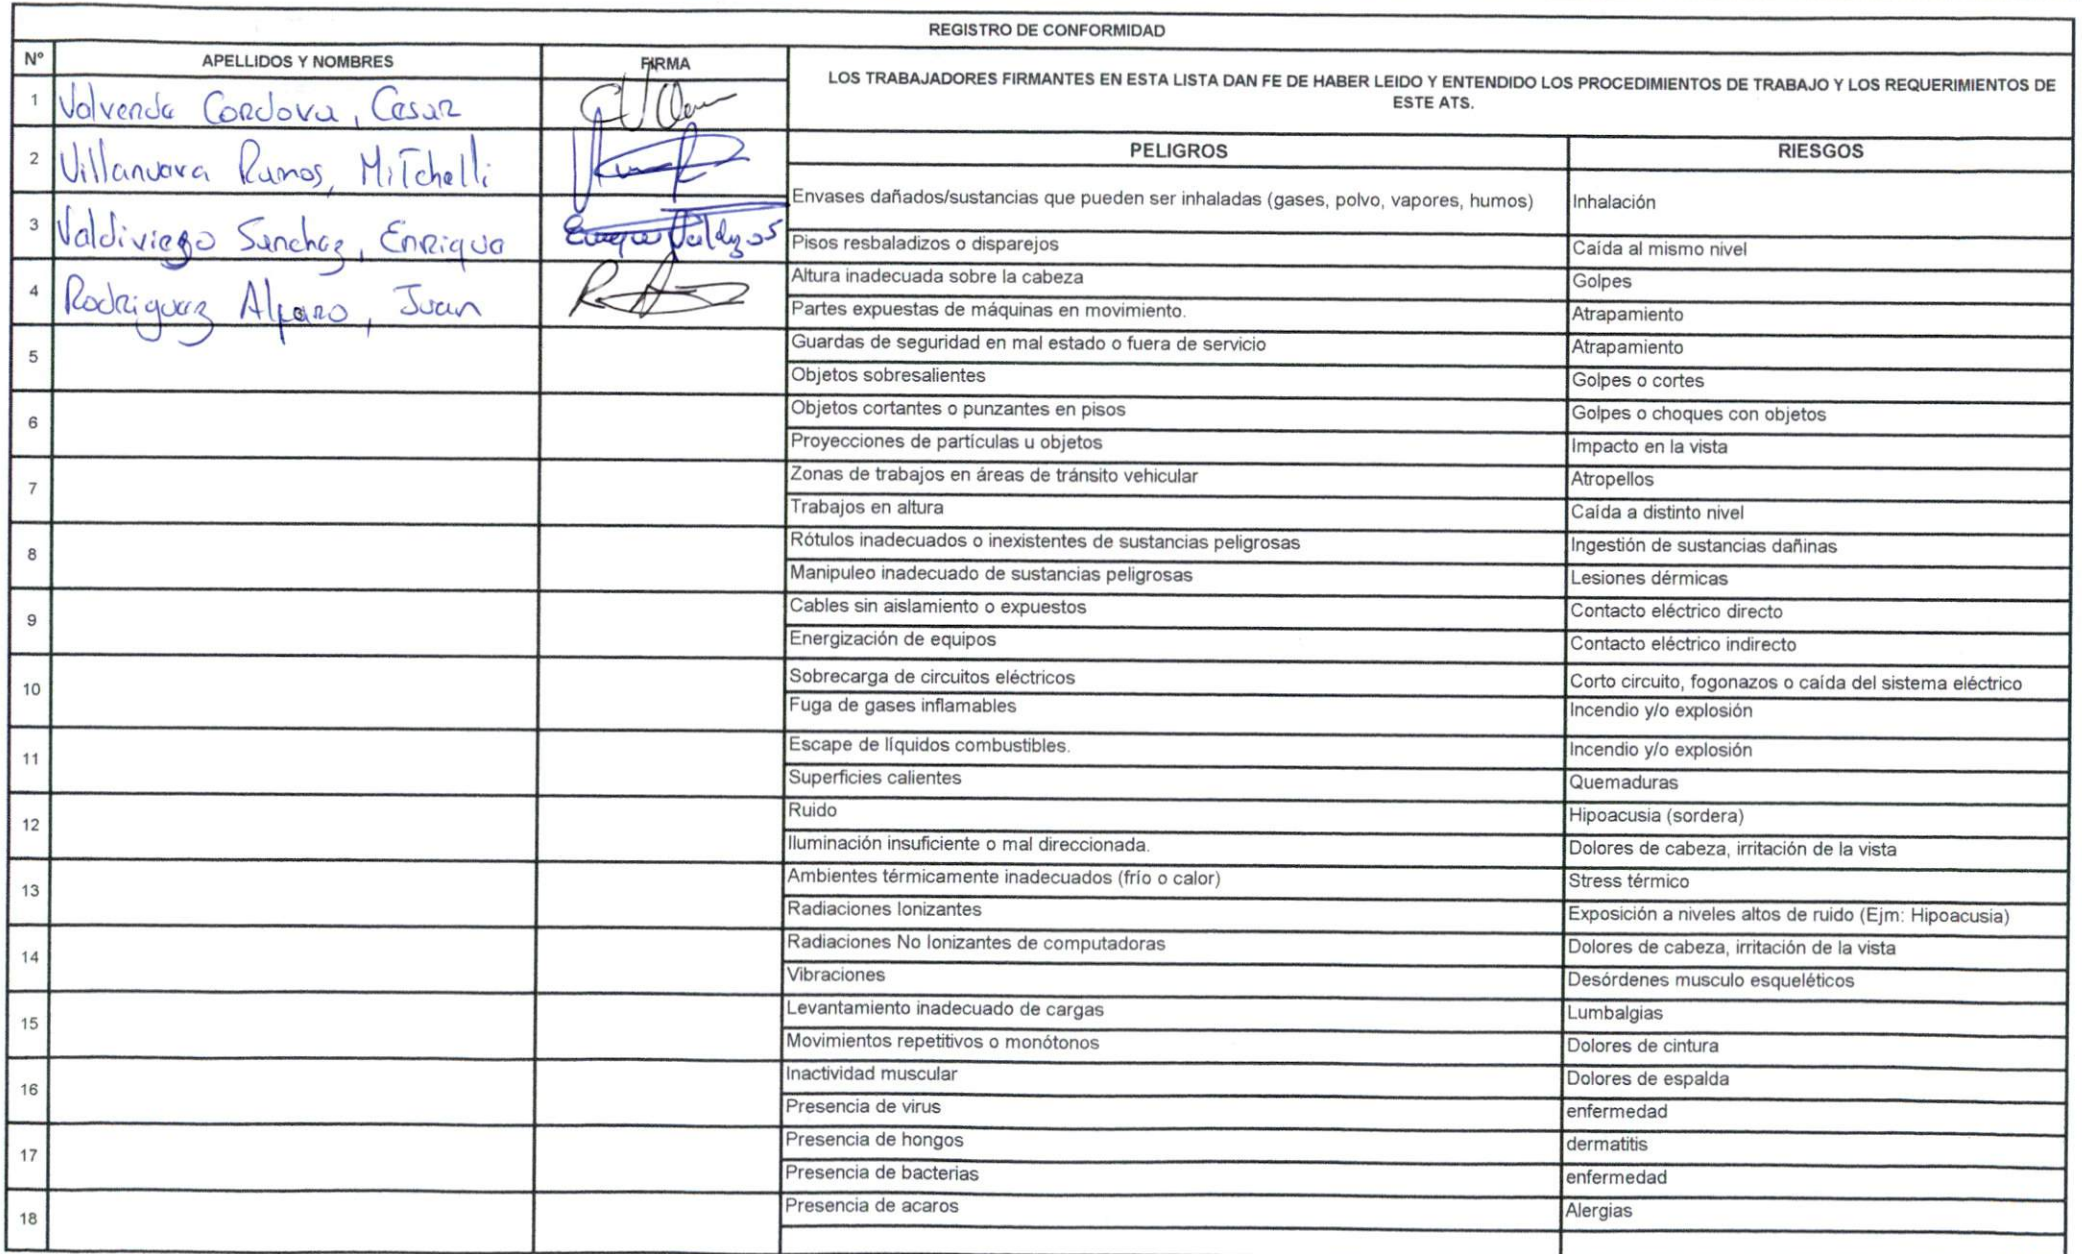 REGISTRO DE CONFORMIDAD
Nº APELLIDOS Y NOMBRES FIRMA
LOS TRABAJADORES FIRMANTES EN ESTA LISTA DAN FE DE HABER LEIDO Y ENTENDIDO LOS PROCEDIMIENTOS DE TRABAJO Y LOS REQUERIMIENTOS DE
ESTE ATS.
1 Valverde Cordova, Cesar
2 Villanueva Ramos, Mitchelli
3 Valdiviezo Sanchez, Enrique
4 Rodriguez Alfaro, Juan
5
6
7
8
9
10
11
12
13
14
15
16
17
18
PELIGROS RIESGOS
Envases dañados/sustancias que pueden ser inhaladas (gases, polvo, vapores, humos) Inhalación
Pisos resbaladizos o disparejos Caída al mismo nivel
Altura inadecuada sobre la cabeza Golpes
Partes expuestas de máquinas en movimiento. Atrapamiento
Guardas de seguridad en mal estado o fuera de servicio Atrapamiento
Objetos sobresalientes Golpes o cortes
Objetos cortantes o punzantes en pisos Golpes o choques con objetos
Proyecciones de partículas u objetos Impacto en la vista
Zonas de trabajos en áreas de tránsito vehicular Atropellos
Trabajos en altura Caída a distinto nivel
Rótulos inadecuados o inexistentes de sustancias peligrosas Ingestión de sustancias dañinas
Manipuleo inadecuado de sustancias peligrosas Lesiones dérmicas
Cables sin aislamiento o expuestos Contacto eléctrico directo
Energización de equipos Contacto eléctrico indirecto
Sobrecarga de circuitos eléctricos Corto circuito, fogonazos o caída del sistema eléctrico
Fuga de gases inflamables Incendio y/o explosión
Escape de líquidos combustibles. Incendio y/o explosión
Superficies calientes Quemaduras
Ruido Hipoacusia (sordera)
Iluminación insuficiente o mal direccionada. Dolores de cabeza, irritación de la vista
Ambientes térmicamente inadecuados (frío o calor) Stress térmico
Radiaciones Ionizantes Exposición a niveles altos de ruido (Ejm: Hipoacusia)
Radiaciones No Ionizantes de computadoras Dolores de cabeza, irritación de la vista
Vibraciones Desórdenes musculo esqueléticos
Levantamiento inadecuado de cargas Lumbalgias
Movimientos repetitivos o monótonos Dolores de cintura
Inactividad muscular Dolores de espalda
Presencia de virus enfermedad
Presencia de hongos dermatitis
Presencia de bacterias enfermedad
Presencia de acaros Alergias